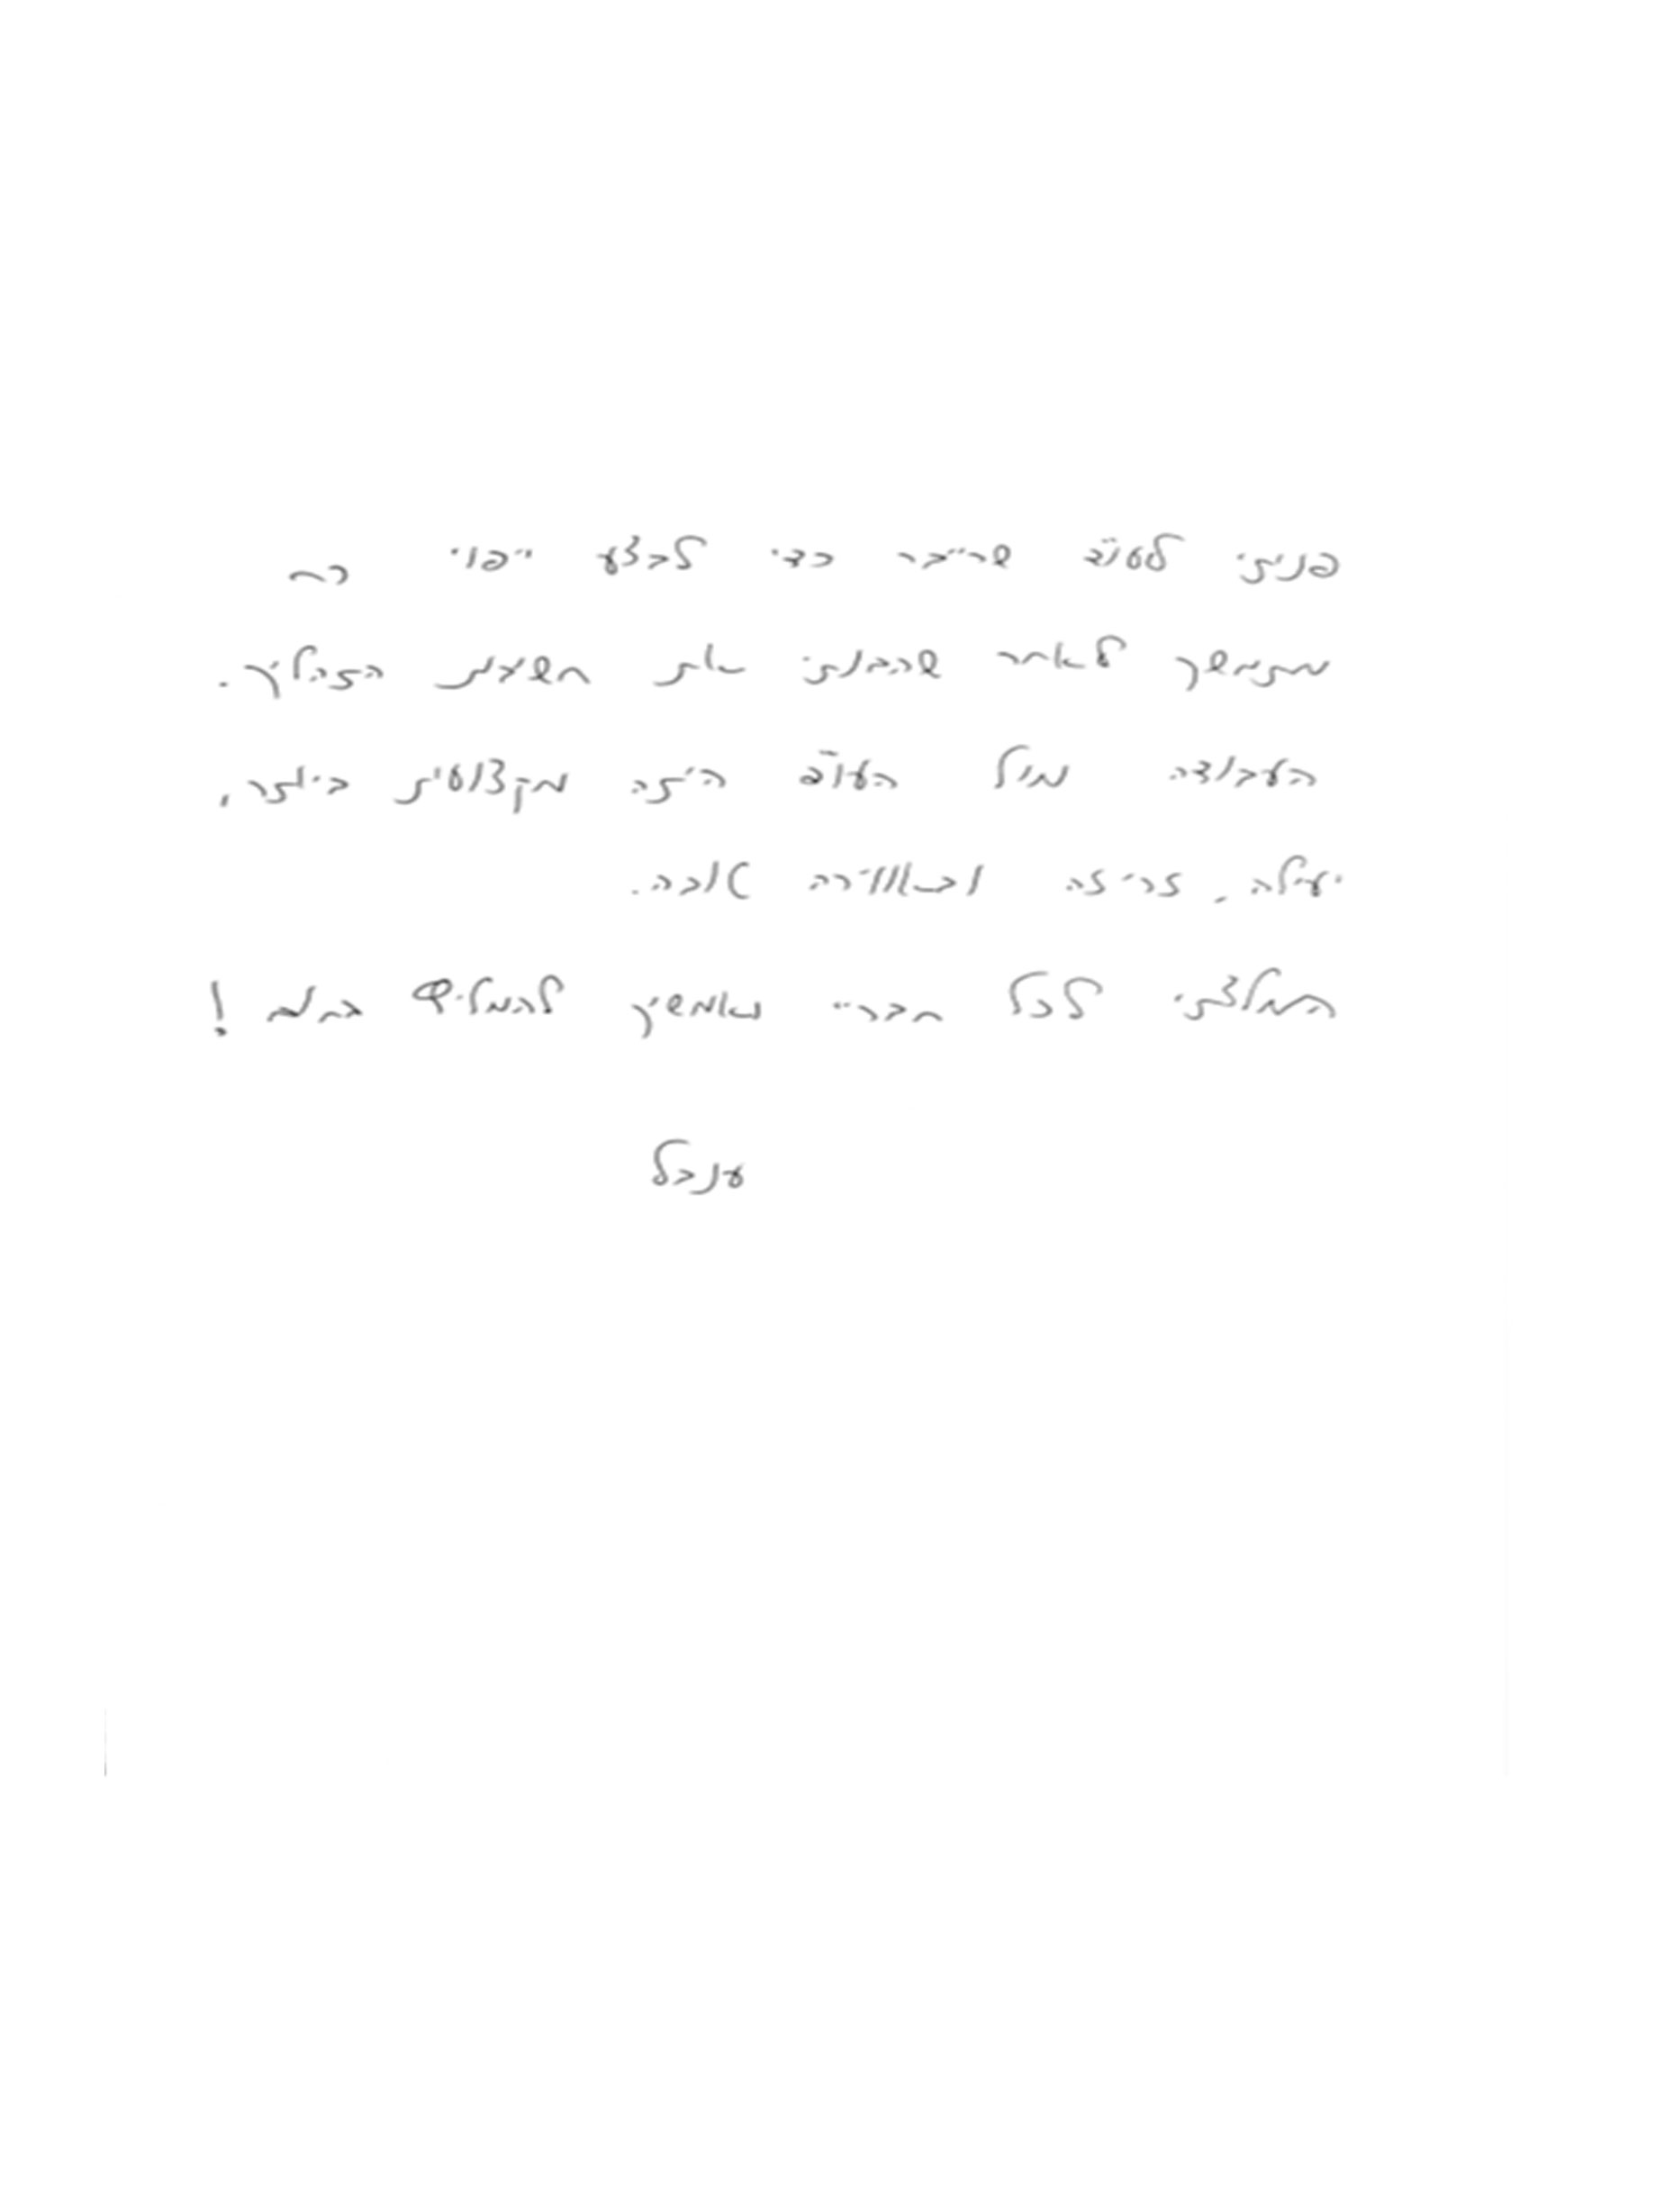 פניתי לעו"ד שרייבר כדי לבצע ייפוי כח
מתמשך לאחר שהבנתי את חשיבות ההליך.
העבודה מול העו"ס היתה מקצועית ביותר,
יעילה, זריזה ובאווירה טובה.
המלצתי לכל חברי ואמשיך להמליץ בחום!
ענבל